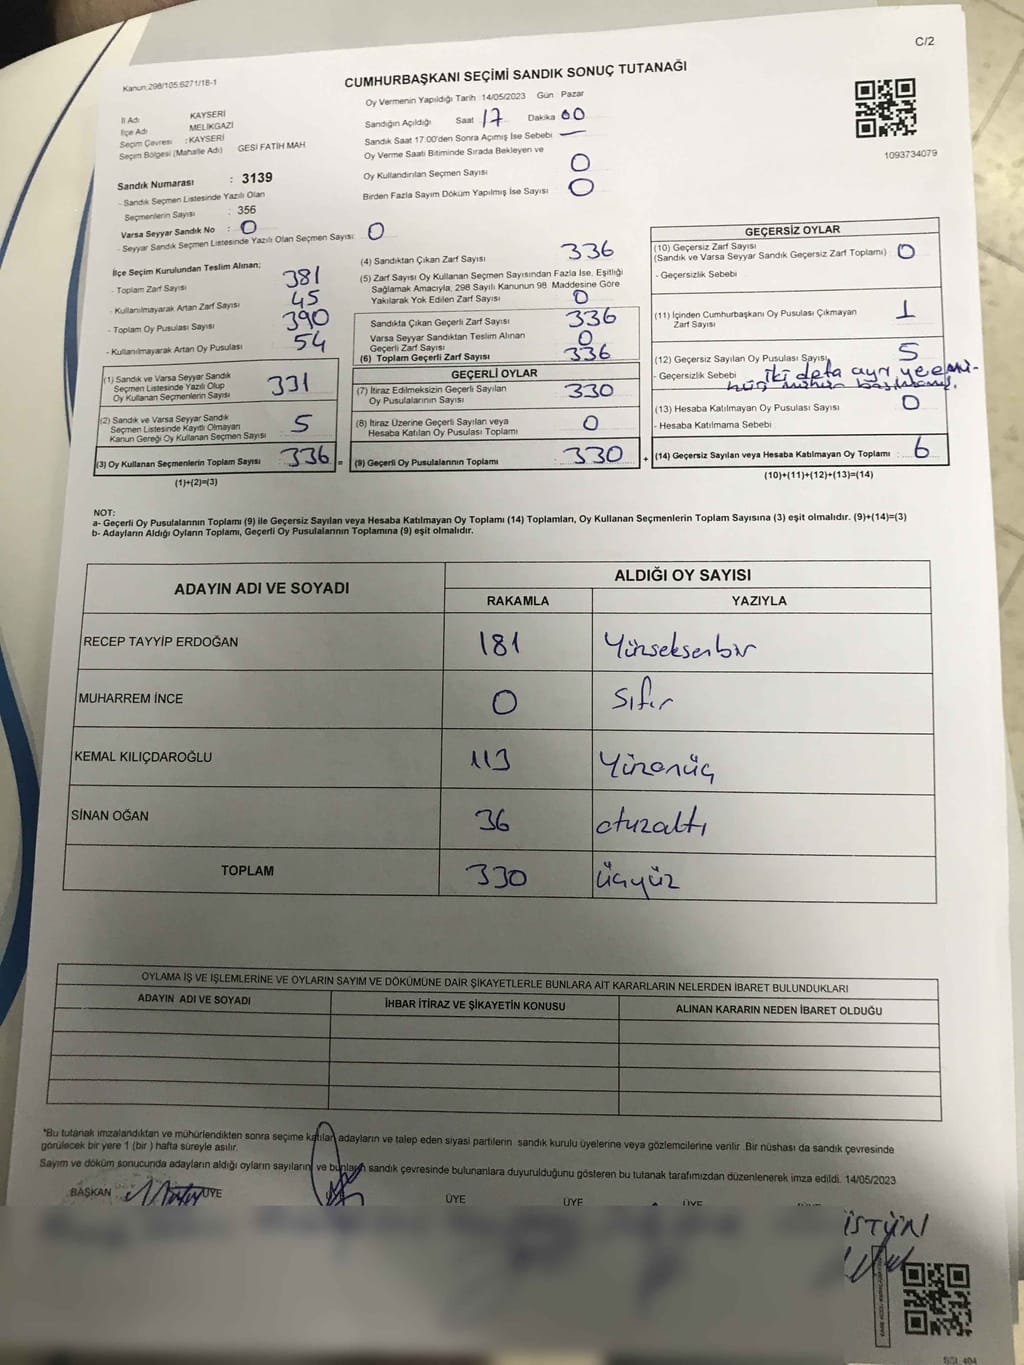 C/2
Kanun:298/105:6271/18-1
CUMHURBAŞKANI SEÇİMİ SANDIK SONUÇ TUTANAĞI
İl Adı KAYSERİ
İlçe Adı MELİKGAZİ
Seçim Çevresi : KAYSERİ
Seçim Bölgesi (Mahalle Adı) GESİ FATİH MAH
Sandık Numarası : 3139
- Sandık Seçmen Listesinde Yazılı Olan
Seçmenlerin Sayısı : 356
Varsa Seyyar Sandık No : 0
- Seyyar Sandık Seçmen Listesinde Yazılı Olan Seçmen Sayısı: 0
Oy Vermenin Yapıldığı Tarih 14/05/2023 Gün Pazar
Sandığın Açıldığı Saat 17 Dakika 00
Sandık Saat 17:00'den Sonra Açımış İse Sebebi —
Oy Verme Saati Bitiminde Sırada Bekleyen ve
Oy Kullandırılan Seçmen Sayısı 0
Birden Fazla Sayım Döküm Yapılmış İse Sayısı 0
1093734079
İlçe Seçim Kurulundan Teslim Alınan;
- Toplam Zarf Sayısı 381
- Kullanılmayarak Artan Zarf Sayısı 45
- Toplam Oy Pusulası Sayısı 390
- Kullanılmayarak Artan Oy Pusulası 54
(1) Sandık ve Varsa Seyyar Sandık
Seçmen Listesinde Yazılı Olup
Oy Kullanan Seçmenlerin Sayısı 331
(2) Sandık ve Varsa Seyyar Sandık
Seçmen Listesinde Kayıtlı Olmayan
Kanun Gereği Oy Kullanan Seçmen Sayısı 5
(3) Oy Kullanan Seçmenlerin Toplam Sayısı 336 =
(1)+(2)=(3)
(4) Sandıktan Çıkan Zarf Sayısı 336
(5) Zarf Sayısı Oy Kullanan Seçmen Sayısından Fazla İse, Eşitliği
Sağlamak Amacıyla, 298 Sayılı Kanunun 98. Maddesine Göre
Yakılarak Yok Edilen Zarf Sayısı 0
Sandıkta Çıkan Geçerli Zarf Sayısı 336
Varsa Seyyar Sandıktan Teslim Alınan
Geçerli Zarf Sayısı 0
(6) Toplam Geçerli Zarf Sayısı 336
GEÇERLİ OYLAR
(7) İtiraz Edilmeksizin Geçerli Sayılan
Oy Pusulalarının Sayısı 330
(8) İtiraz Üzerine Geçerli Sayılan veya
Hesaba Katılan Oy Pusulası Toplamı 0
(9) Geçerli Oy Pusulalarının Toplamı 330 +
GEÇERSİZ OYLAR
(10) Geçersiz Zarf Sayısı
(Sandık ve Varsa Seyyar Sandık Geçersiz Zarf Toplamı) 0
- Geçersizlik Sebebi
(11) İçinden Cumhurbaşkanı Oy Pusulası Çıkmayan
Zarf Sayısı 1
(12) Geçersiz Sayılan Oy Pusulası Sayısı 5
- Geçersizlik Sebebi iki defa ayrı yere mü-
hür
(13) Hesaba Katılmayan Oy Pusulası Sayısı 0
- Hesaba Katılmama Sebebi
(14) Geçersiz Sayılan veya Hesaba Katılmayan Oy Toplamı : 6
(10)+(11)+(12)+(13)=(14)
NOT:
a- Geçerli Oy Pusulalarının Toplamı (9) ile Geçersiz Sayılan veya Hesaba Katılmayan Oy Toplamı (14) Toplamları, Oy Kullanan Seçmenlerin Toplam Sayısına (3) eşit olmalıdır. (9)+(14)=(3)
b- Adayların Aldığı Oyların Toplamı, Geçerli Oy Pusulalarının Toplamına (9) eşit olmalıdır.
ADAYIN ADI VE SOYADI
ALDIĞI OY SAYISI
RAKAMLA YAZIYLA
RECEP TAYYİP ERDOĞAN 181 Yüzseksenbir
MUHARREM İNCE 0 Sıfır
KEMAL KILIÇDAROĞLU 113 Yüzonüç
SİNAN OĞAN 36 otuzaltı
TOPLAM 330 üçyüz
OYLAMA İŞ VE İŞLEMLERİNE VE OYLARIN SAYIM VE DÖKÜMÜNE DAİR ŞİKAYETLERLE BUNLARA AİT KARARLARIN NELERDEN İBARET BULUNDUKLARI
ADAYIN ADI VE SOYADI İHBAR İTİRAZ VE ŞİKAYETİN KONUSU ALINAN KARARIN NEDEN İBARET OLDUĞU
*Bu tutanak imzalandıktan ve mühürlendikten sonra seçime katılan adayların ve talep eden siyasi partilerin sandık kurulu üyelerine veya gözlemcilerine verilir. Bir nüshası da sandık çevresinde
görülecek bir yere 1 (bir ) hafta süreyle asılır.
Sayım ve döküm sonucunda adayların aldığı oyların sayıların ve bunların sandık çevresinde bulunanlara duyurulduğunu gösteren bu tutanak tarafımızdan düzenlenerek imza edildi. 14/05/2023
BAŞKAN ÜYE ÜYE ÜYE ÜYE
İSTÜN